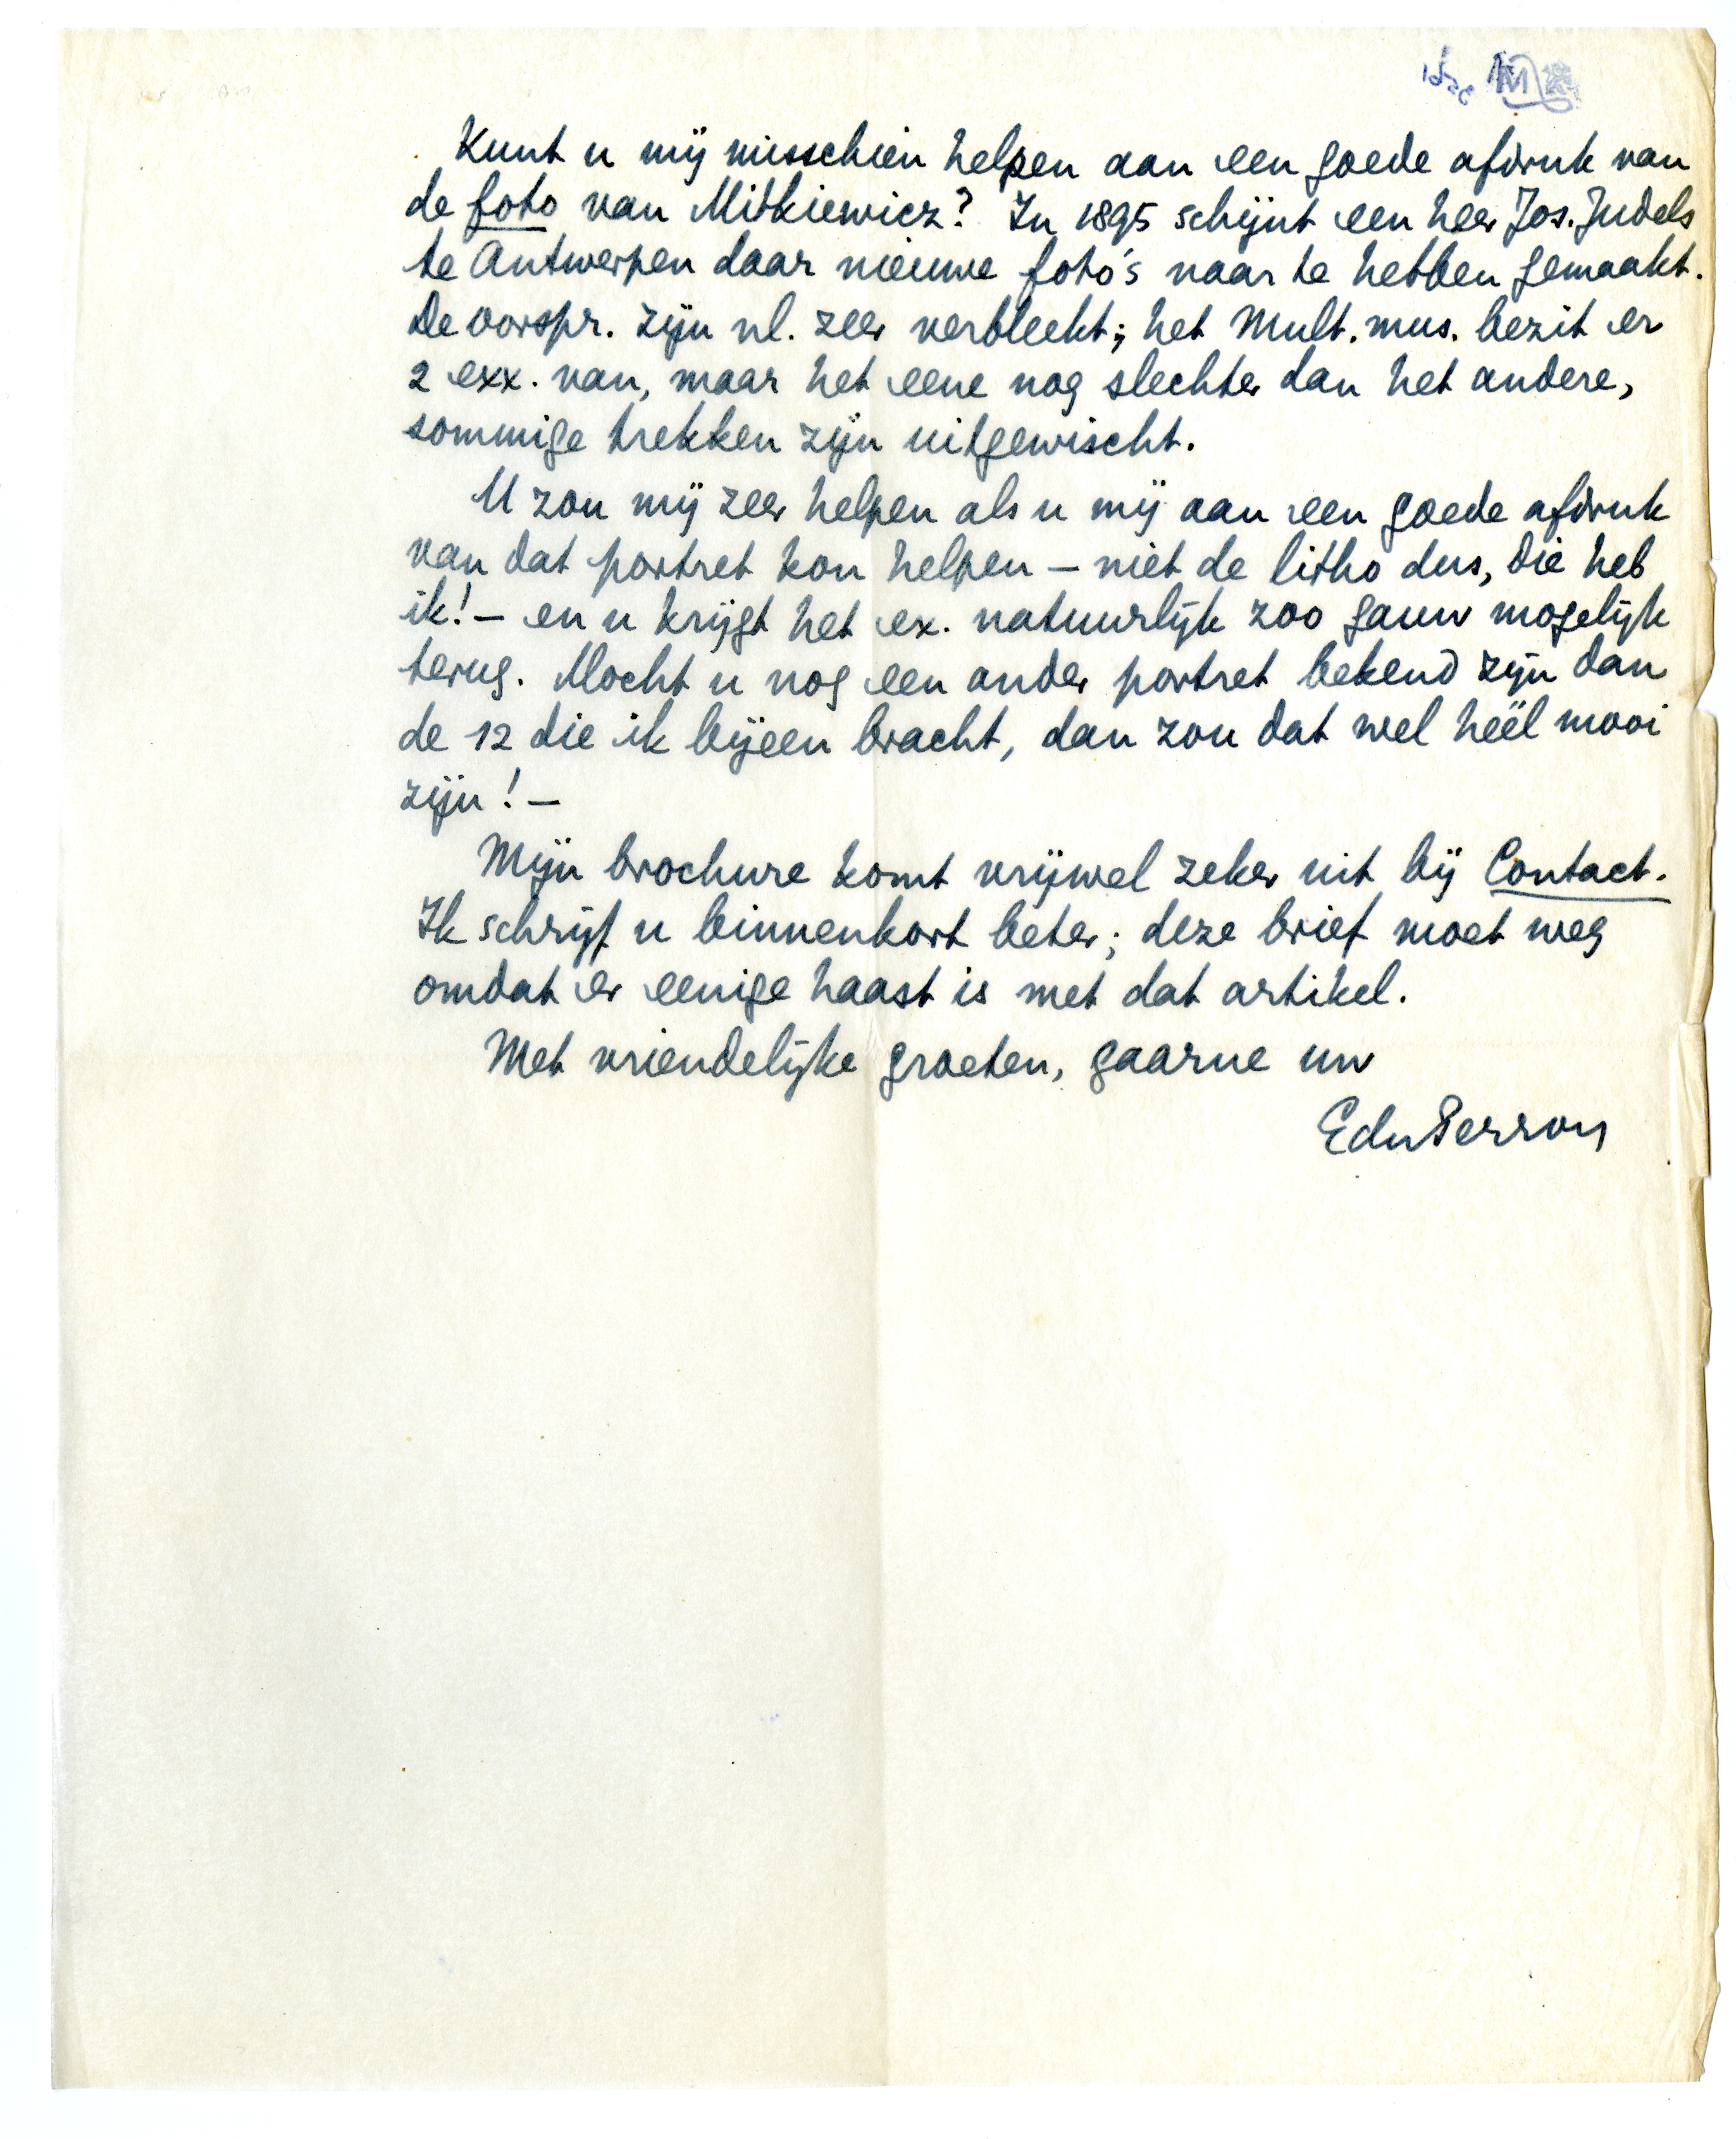 Kunt u mij misschien helpen aan een goede afdruk van
de foto van Mitkiewicz? In 1895 schijnt een heer Jos. Judels
te Antwerpen daar nieuwe foto's naar te hebben gemaakt.
De oorspr. zijn nl. zeer verbleekt; het Mult. mus. bezit er
2 exx. van, maar het eene nog slechter dan het andere,
sommige trekken zijn uitgewischt.
U zou mij zeer helpen als u mij aan een goede afdruk
van dat portret kon helpen – niet de litho dus, die heb
ik! – en u krijgt het ex. natuurlijk zoo gauw mogelijk
terug. Mocht u nog een ander portret bekend zijn dan
de 12 die ik bijeen bracht, dan zou dat wel héél mooi
zijn! –
Mijn brochure komt vrijwel zeker uit bij Contact.
Ik schrijf u binnenkort beter; deze brief moet weg
omdat er eenige haast is met dat artikel.
Met vriendelijke groeten, gaarne uw
EduPerron